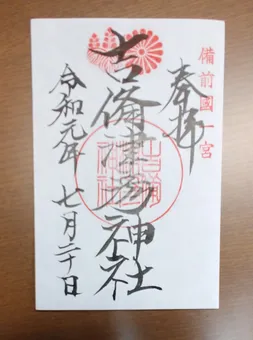 備前國一宮
奉拝
吉備津彦神社
令和元年 七月二十日